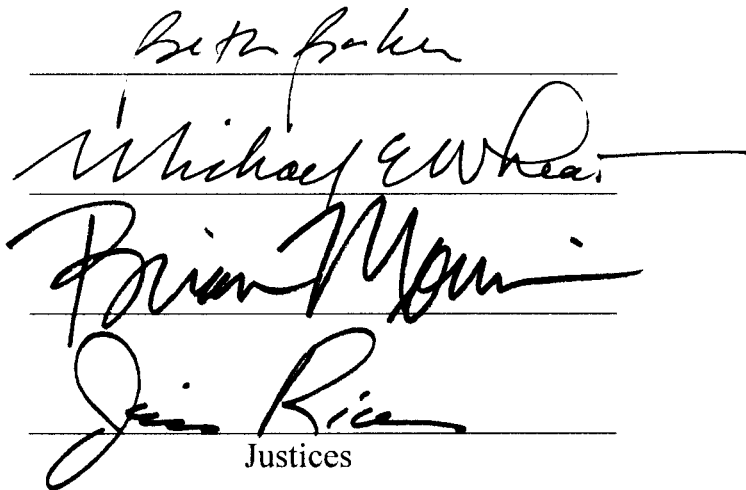 Beth Baker
Michael E Wheat
Brian Morris
Jim Rice
Justices